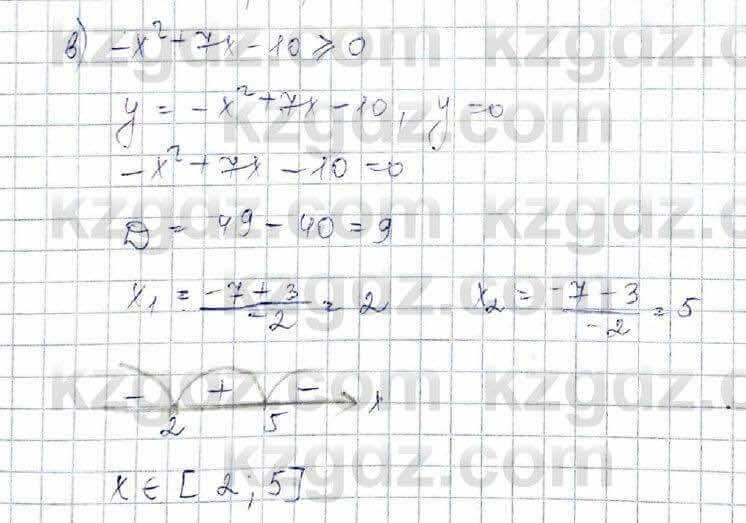 в) -x²+7x-10≥0
y = -x²+7x-10, y=0
-x²+7x-10=0
D = 49-40=9
x₁ = (-7+3)/(-2) = 2   x₂ = (-7-3)/(-2) = 5
- + - x
2 5
x ∈ [2; 5]
kzgdz.com kzgdz.com
kzgdz.com
kzgdz.com kzgdz.com
kzgdz.com
kzgdz.com kzgdz.com
kzgdz.com